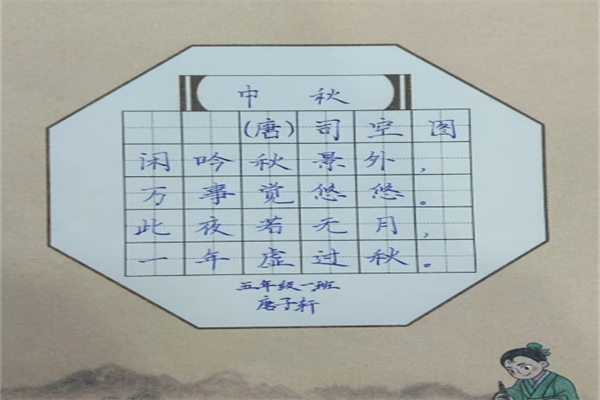 中秋
(唐)司空图
闲吟秋景外,
万事觉悠悠。
此夜若无月,
一年虚过秋。
五年级一班
唐子轩